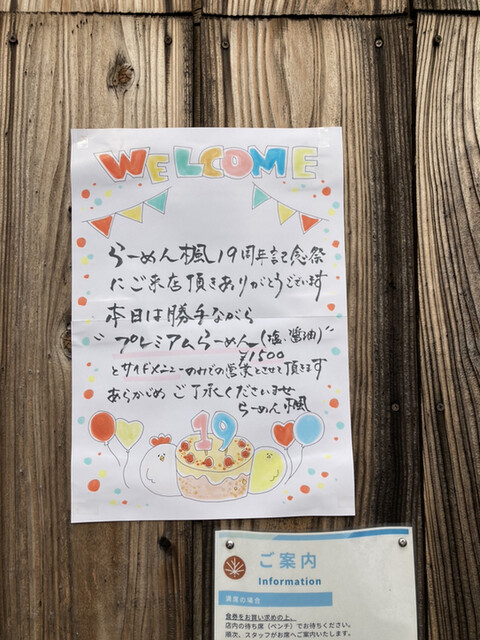 WELCOME
らーめん楓19周年記念祭
にご来店頂きありがとうございます
本日は勝手ながら
"プレミアムらーめん(塩、醤油)"
¥1500
とサイドメニューのみでの営業とさせて頂きます
あらかじめご了承くださいませ
らーめん楓
19
ご案内
Information
満席の場合
食券をお買い求めの上、
店内の待ち席（ベンチ）でお待ちください。
順次、スタッフがお席へご案内いたします。